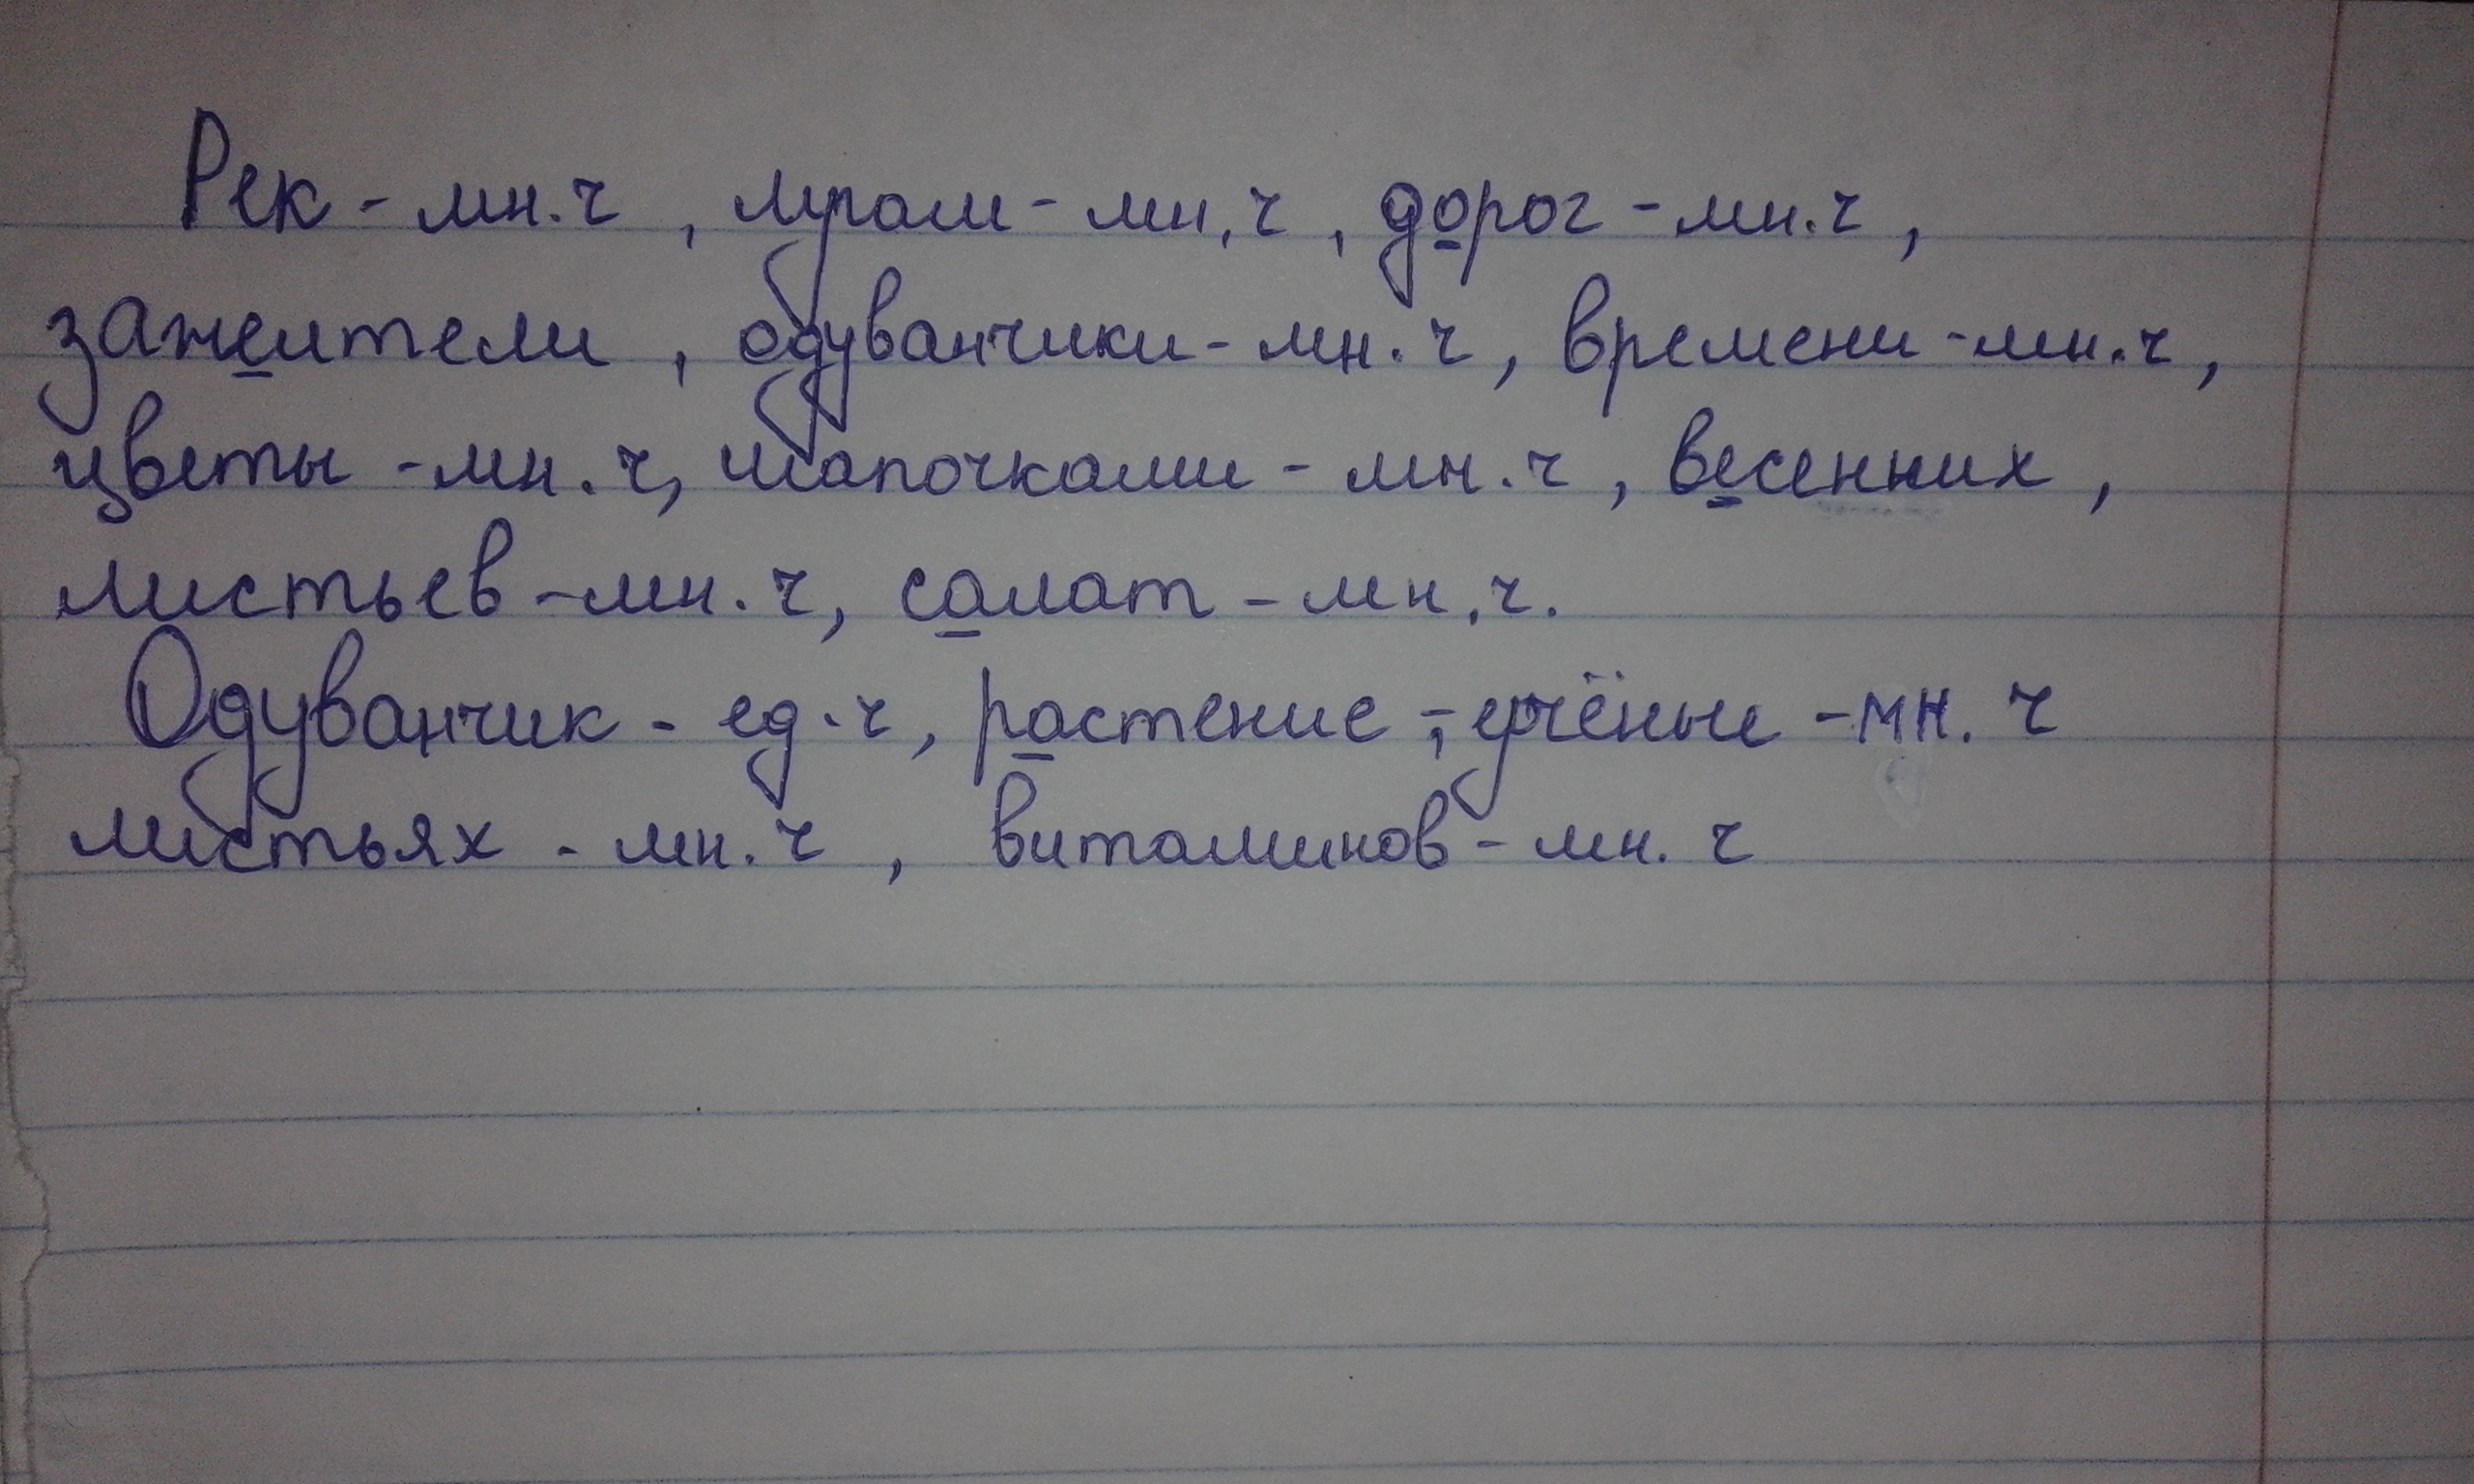 Рек - мн.ч , лугам - мн,ч , дорог - мн.ч ,
зажеители , одуванчики - мн.ч , времени - мн.ч ,
цветы - мн.ч, шапочками - мн.ч , весенних ,
листьев - мн.ч, салат - мн,ч.
Одуванчик - ед.ч , растение - , учёные - мн. ч
листьях - мн.ч , витаминов - мн. ч